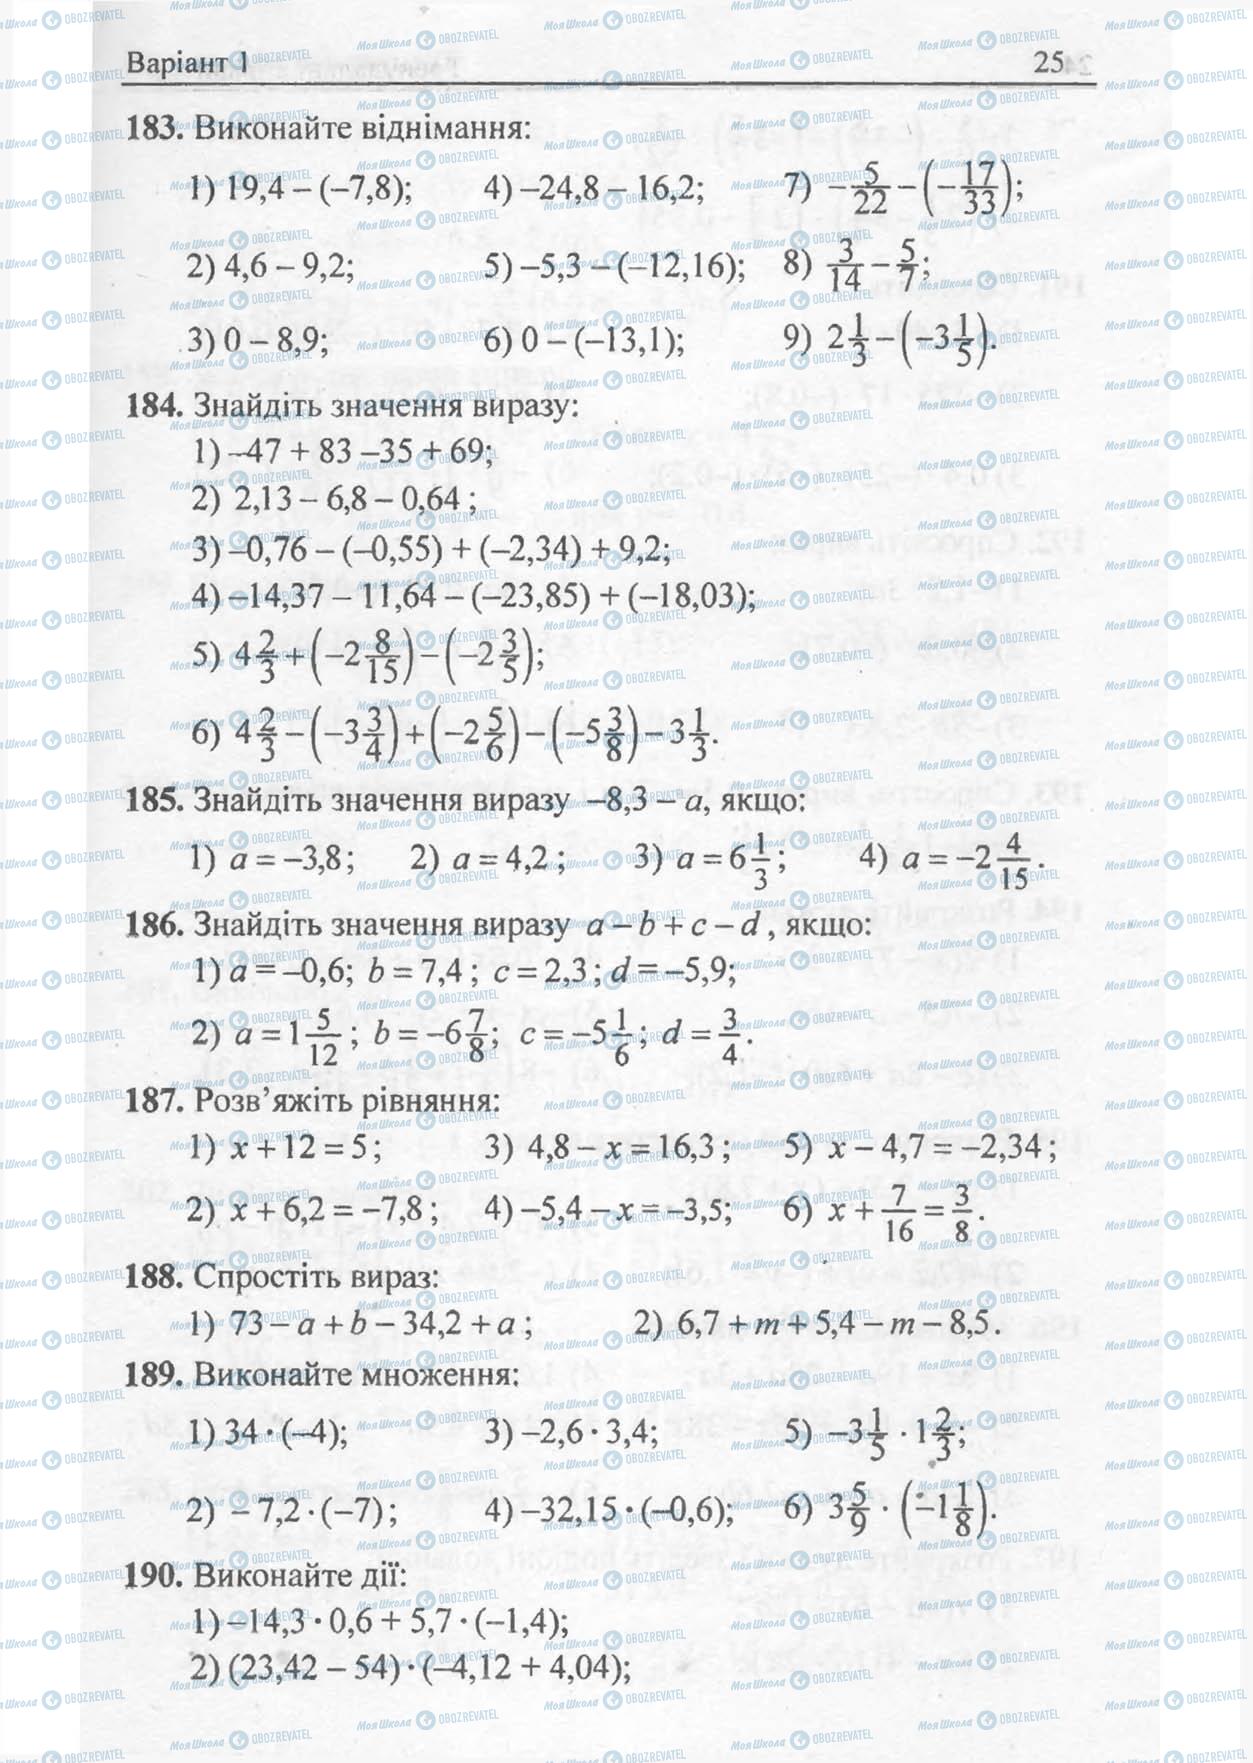 Варіант 1 25
183. Виконайте віднімання:
1) 19,4 – (–7,8); 4) –24,8 – 16,2; 7) –5/22 – (–17/33);
2) 4,6 – 9,2; 5) –5,3 – (–12,16); 8) 3/14 – 5/7;
3) 0 – 8,9; 6) 0 – (–13,1); 9) 2 1/3 – (–3 1/5).
184. Знайдіть значення виразу:
1) –47 + 83 –35 + 69;
2) 2,13 – 6,8 – 0,64 ;
3) –0,76 – (–0,55) + (–2,34) + 9,2;
4) –14,37 – 11,64 – (–23,85) + (–18,03);
5) 4 2/3 + (–2 8/15) – (–2 3/5);
6) 4 2/3 – (–3 3/4) + (–2 5/6) – (–5 3/8) – 3 1/3.
185. Знайдіть значення виразу –8,3 – a, якщо:
1) a = –3,8; 2) a = 4,2 ; 3) a = 6 1/3 ; 4) a = –2 4/15 .
186. Знайдіть значення виразу a – b + c – d , якщо:
1) a = –0,6; b = 7,4 ; c = 2,3 ; d = –5,9;
2) a = 1 5/12 ; b = –6 7/8; c = –5 1/6 ; d = 3/4 .
187. Розв’яжіть рівняння:
1) x + 12 = 5 ; 3) 4,8 – x = 16,3 ; 5) x – 4,7 = –2,34 ;
2) x + 6,2 = –7,8 ; 4) –5,4 – x = –3,5; 6) x + 7/16 = 3/8 .
188. Спростіть вираз:
1) 73 – a + b – 34,2 + a ; 2) 6,7 + m + 5,4 – m – 8,5 .
189. Виконайте множення:
1) 34 · (–4); 3) –2,6 · 3,4; 5) –3 1/5 · 1 2/3;
2) – 7,2 · (–7) ; 4) –32,15 · (–0,6); 6) 3 5/9 · (–1 1/8).
190. Виконайте дії:
1) –14,3 · 0,6 + 5,7 · (–1,4);
2) (23,42 – 54) · (–4,12 + 4,04);
МояШкола OBOZREVATEL